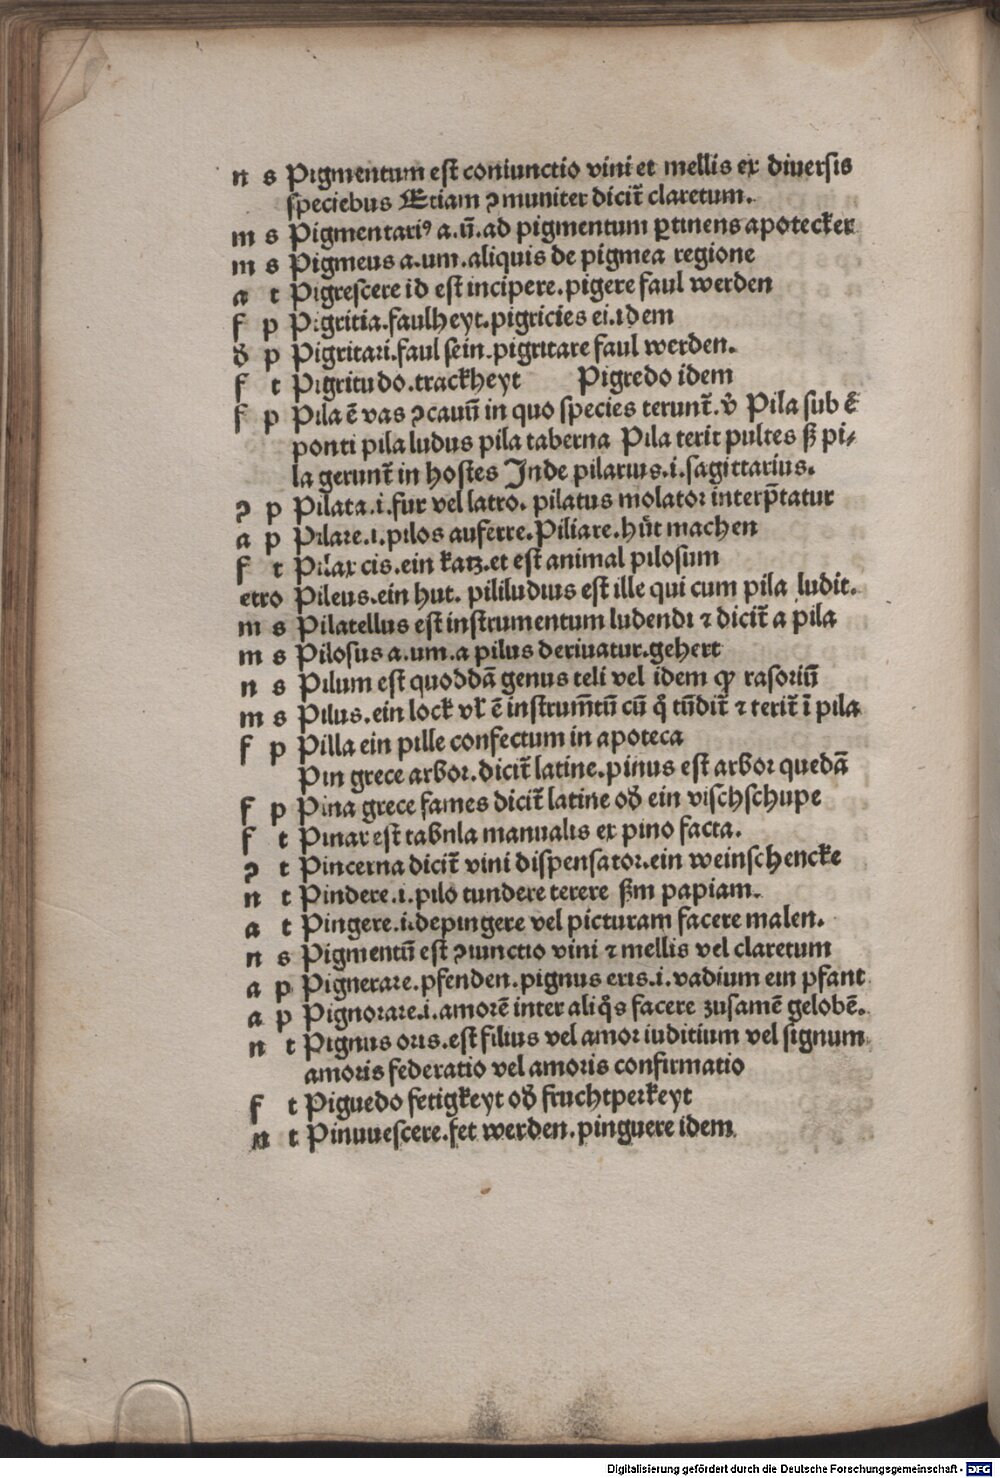 n s Pigmentum est coniunctio vini et mellis ex diuersis
speciebus Etiam ꝯmuniter dicit̃ claretum.
m s Pigmentariꝰ a.ū.ad pigmentum ꝑtinens apotecker
m s Pigmeus a.um.aliquis de pigmea regione
a t Pigrescere id est incipere.pigere faul werden
f p Pigritia.faulheyt.pigricies ei.idem
ꝺ̃ p Pigritari.faul sein.pigritare faul werden.
f t Pigritudo.trackheyt Pigredo idem
f p Pila ē vas ꝯcauū in quo species terunt̃.v̾ Pila sub ē
ponti pila ludus pila taberna Pila terit pultes ß pi⸗
la gerunt̃ in hostes Inde pilarius.i.sagittarius.
ꝯ p Pilata.i.fur vel latro. pilatus molator interp̃tatur
a p Pilare.i.pilos auferre.Piliare.hüt machen
f t Pilax cis.ein katz.et est animal pilosum
etro Pileus.ein hut. pililudius est ille qui cum pila ludit.
m s Pilatellus est instrumentum ludendi ⁊ dicit̃ a pila
m s Pilosus a.um.a pilus deriuatur.gehert
n s Pilum est quoddā genus teli vel idem ꝙ rasoriū
m s Pilus.ein lock vl̾ ē instrum̄tū cū q̊ tūdit̃ ⁊ terit̃ ī pila
f p Pilla ein pille confectum in apoteca
Pin grece arbor.dicit̃ latine.pinus est arbor quedā
f p Pina grece fames dicit̃ latine oꝺ̃ ein vischschupe
f t Pinax est tabnla manualis ex pino facta.
ꝯ t Pincerna dicit̃ vini dispensator.ein weinschencke
n t Pindere.i.pilo tundere terere ßm papiam.
a t Pingere.i.depingere vel picturam facere malen.
n s Pigmentū est ꝯiunctio vini ⁊ mellis vel claretum
a p Pignerare.pfenden.pignus eris.i.vadium ein pfant
a p Pignorare.i.amorē inter aliq̊s facere zusamē gelobē.
n t Pignus oris.est filius vel amor iuditium vel signum
amoris federatio vel amoris confirmatio
f t Piguedo fetigkeyt oꝺ̃ fruchtperkeyt
n t Pinuuescere.fet werden.pinguere idem
Digitalisierung gefördert durch die Deutsche Forschungsgemeinschaft - DFG